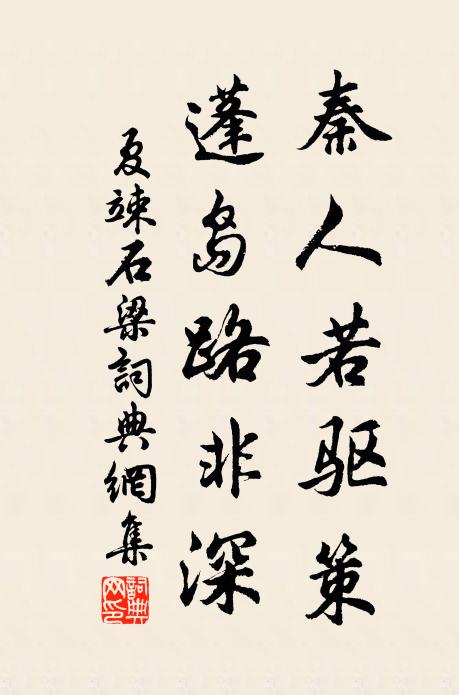 秦人若驱策
蓬岛路非深
夏竦石梁詞典網集
詞典网印